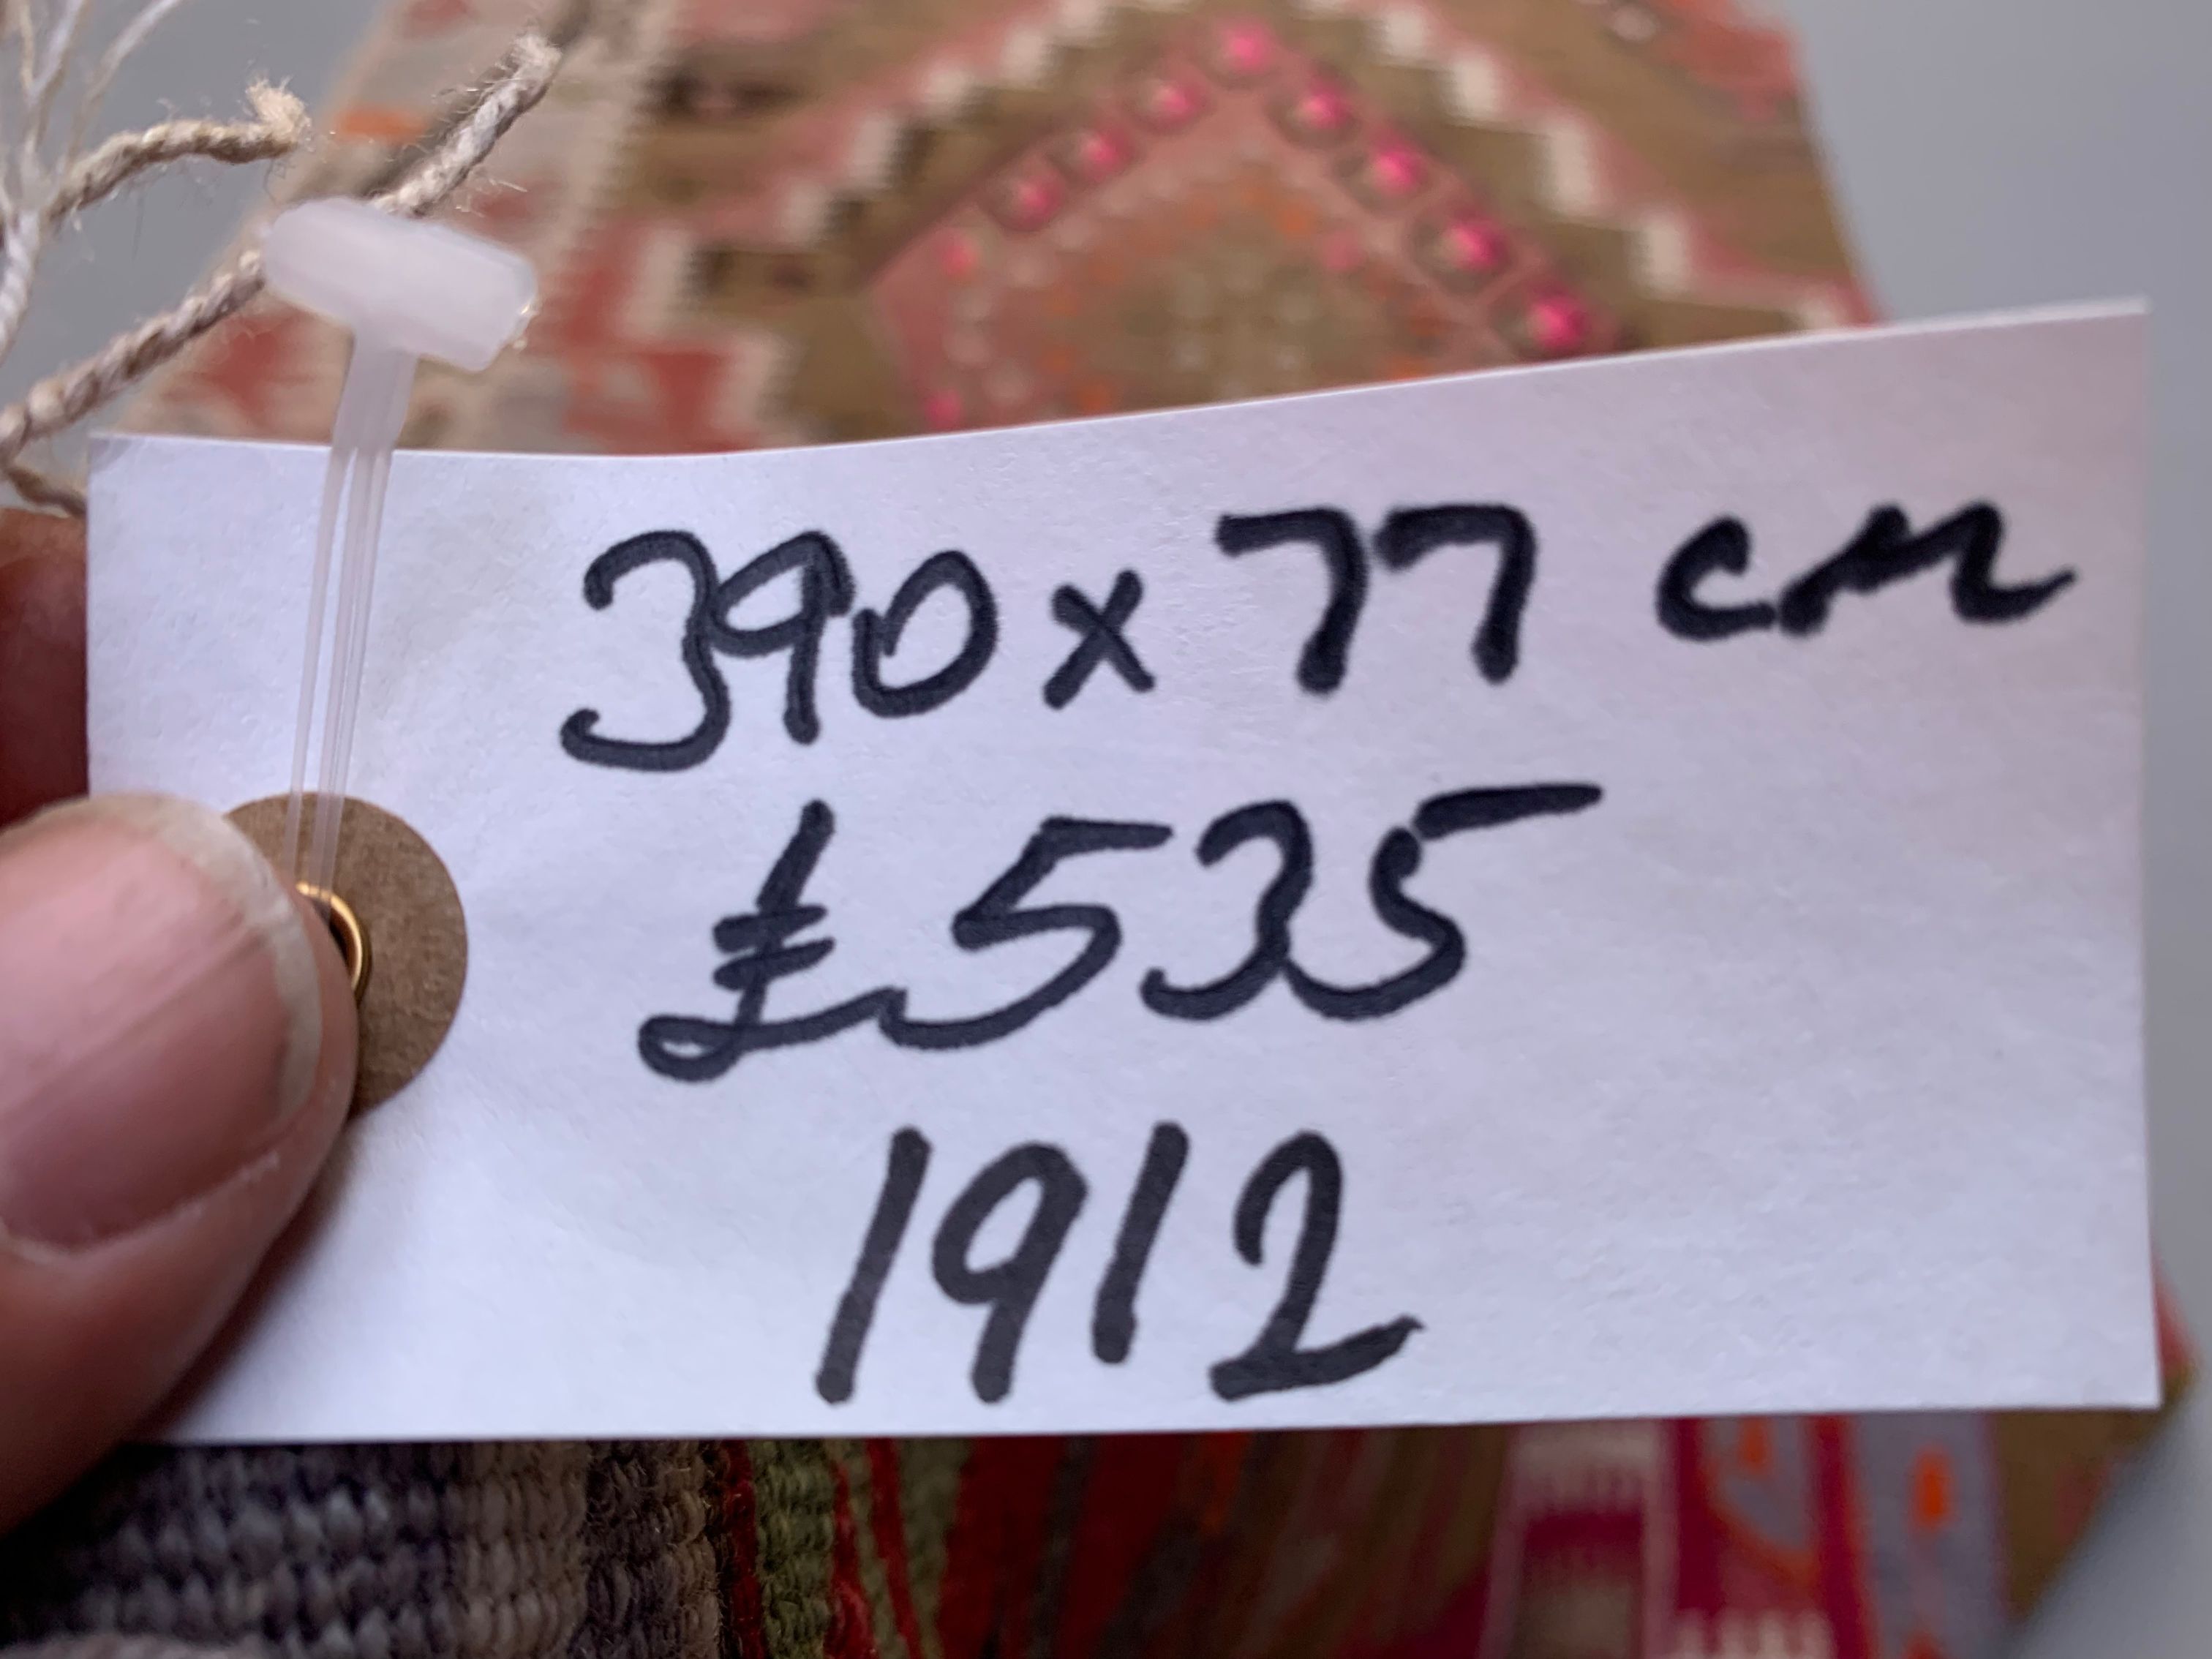 390 x 77 cm
£535
1912